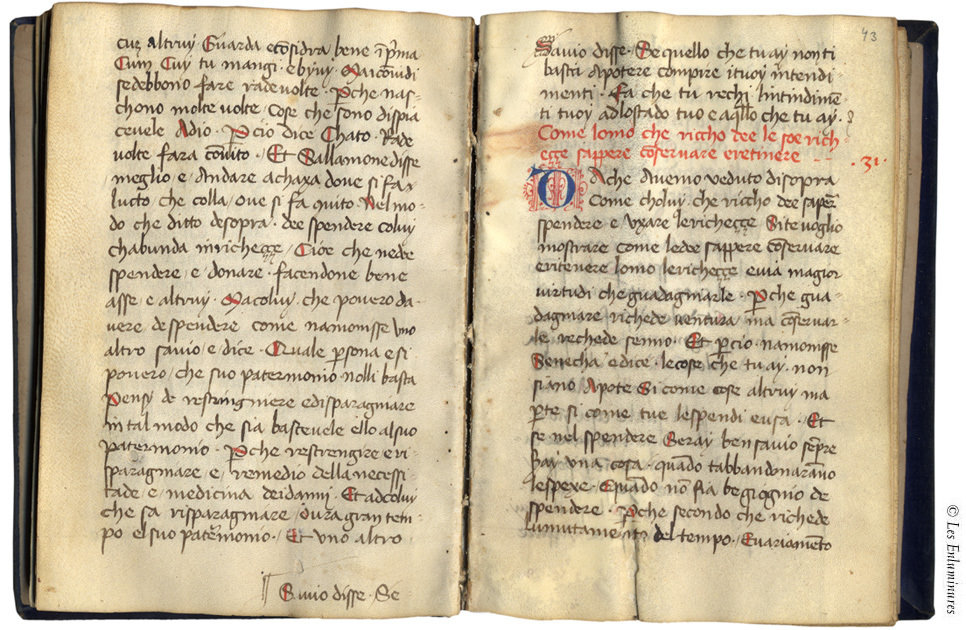 cuz altruy. Guarda e cōsidra bene ī p̄ma
Cum Cuy tu mangi e byuy. Ma icōuidi
se debbono fare rade uolte. Pche nas-
chono molte uolte Cose che sono dispia
ceuele Adio. Pcio dice Chato. Rade
uolte fara cōuito. Et Sallamone disse
meglio e Andare achaxa doue si fa
lucto che colla oue si fa quito. Nel mo-
do che ditto desopra. dee spendere coluy
chabunda in richegçe. Cioe che nedee
spendere e donare. facendone bene
asse e altruy. Ma coluy che pouero da-
uere despendere come namonisse uno
altro sauio e dice. Quale psona e si
pouero che suo patermonio nolli basta
Pensy de restringnere e disparagnare
in tal modo che sia basteuele ello al suo
patermonio. Pche restrengire e ri
sparagmare e remedio della necessi
tade e medicina dei danni. Et ad coluy
che sa risparagmare dura gran tem
po el suo patermonio. Et uno altro
Sauio disse. Se
43
Sauio disse. Se quello che tu ay non ti
basti Apotere compire i tuoy intendi
menti. Fa che tu rechi lintindimē
ti tuoy ad lo stado tuo e aqllo che tu ay.
Come lomo che riccho dee le soe rich
egçe sappere cōseruare e retinere
.31.
Da che Auemo ueduto disopra
Come choluy che riccho dee sapere
spendere e uxare le richegçe. Si te uoglio
mostrare come le dee sappere cōseruare
e ritenere lomo le richegçe e uia magior
uirtudi che guadagmarle. Pche gua-
dagmare richede uentura ma cōseruar-
le richede senno. Et pcio namonisse
Senecha e dice. le cose che tu ay. non
siano Apote Si come cose altruy ma
pte si come tue le spendi e usa. Et
se nel spendere Seray ben sauio sepre
hay una cosa. quādo tabbandonarāno
le spexe. Quādo nō fia begiognio de
spendere. Pche secondo che richede
lo mutamento del tempo. E uariamēto
© Les Enluminures